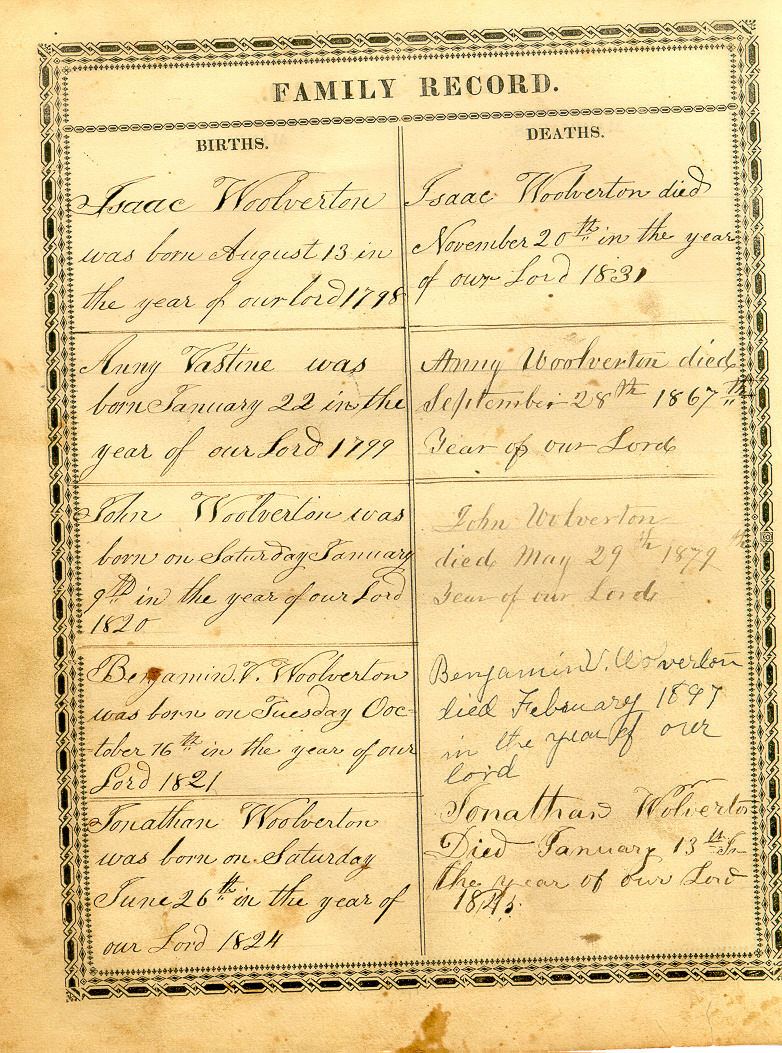 FAMILY RECORD.
BIRTHS.
Isaac Woolverton
was born August 13 in
the year of our lord 1798
Anny Vastine was
born January 22 in the
year of our Lord 1799
John Woolverton was
born on Saturday January
9th in the year of our Lord
1820
Benjamin. V. Woolverton
was born on Tuesday Ooc-
tober 16th in the year of our
Lord 1821
Jonathan Woolverton
was born on Saturday
June 26th in the year of
our Lord 1824
DEATHS.
Isaac Woolverton died
November 20th in the year
of our Lord 1831
Anny Woolverton died
September 28th 1867th
Year of our Lord
John Wolverton
died May 29th 1879th
Year of our Lord
Benjamin V. Wolverton
died February 1897
in the year of our
lord
Jonathan Wolverton
Died January 13th In
the year of our Lord